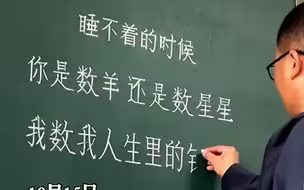 睡不着的时候
你是数羊 还是数星星
我数我人生里的
10月15日